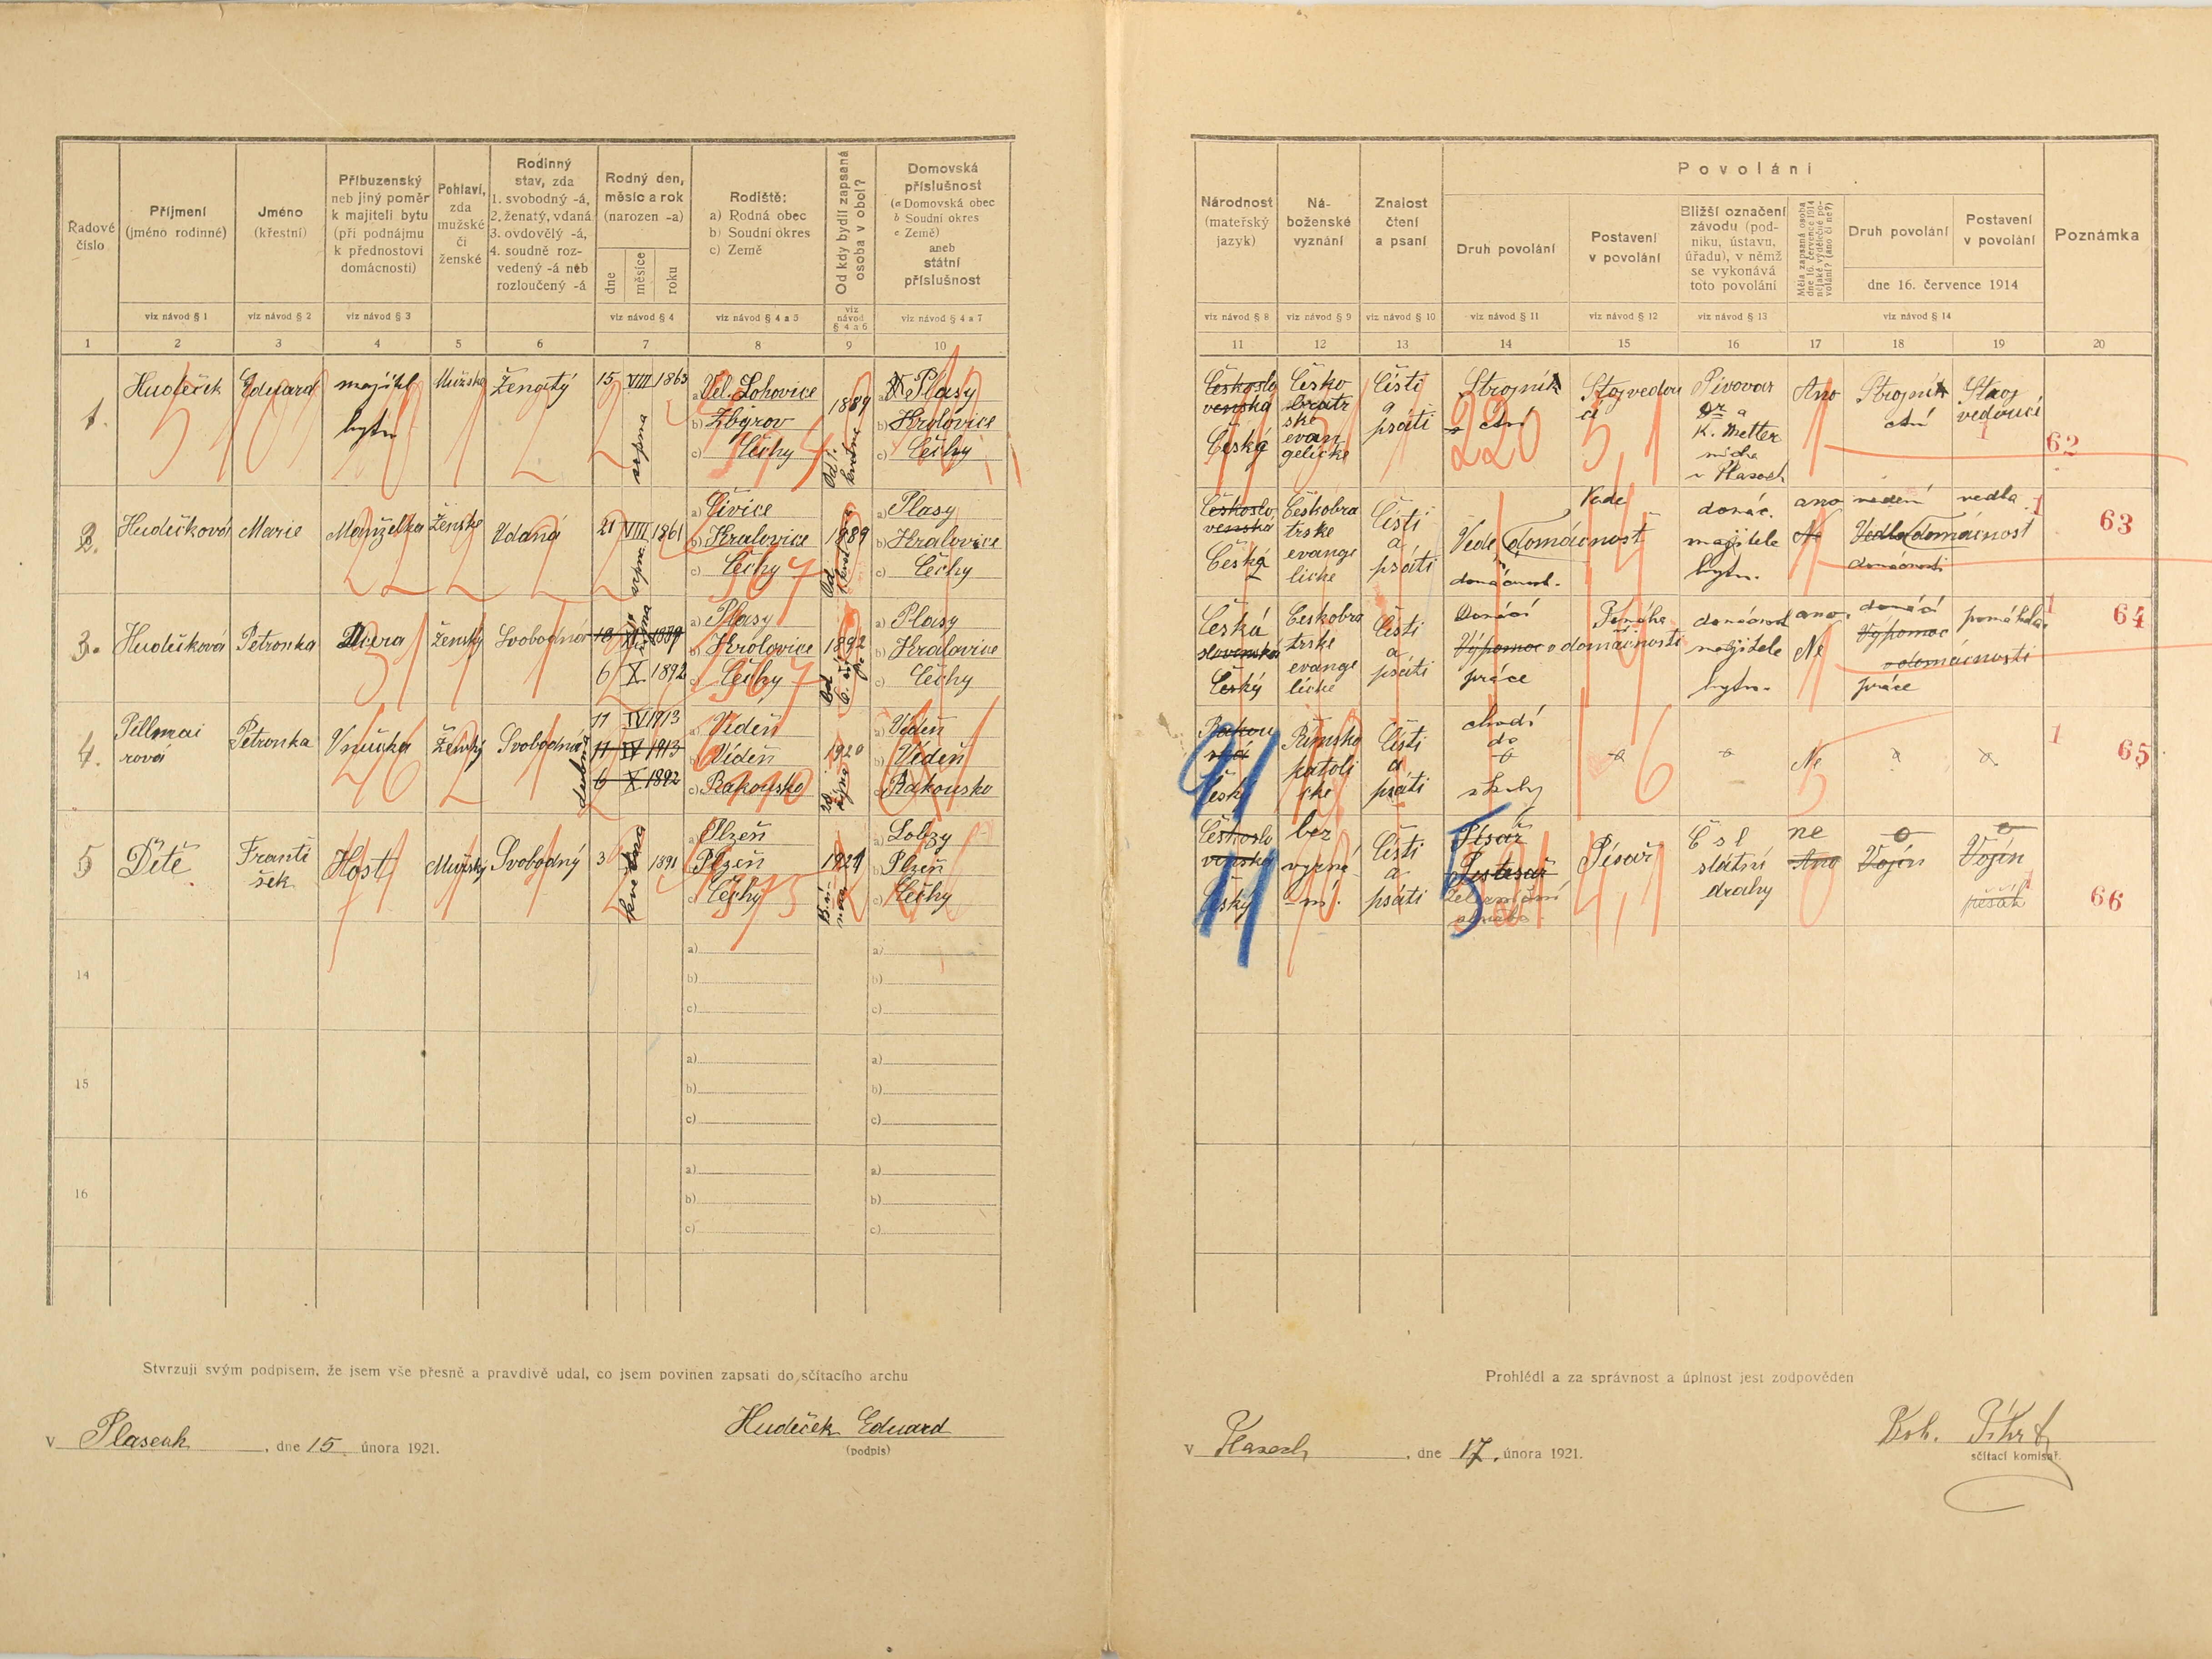 Řadové číslo
Příjmení
(jméno rodinné)
viz návod § 1
Jméno
(křestní)
viz návod § 2
Příbuzenský
neb jiný poměr
k majiteli bytu
(při podnájmu
k přednostovi
domácnosti)
viz návod § 3
Pohlaví,
zda
mužské
či
ženské
Rodinný
stav, zda
1. svobodný -á,
2. ženatý, vdaná
3. ovdovělý -á,
4. soudně roz-
vedený -á neb
rozloučený -á
Rodný den,
měsíc a rok
(narozen -a)
dne
měsíce
roku
viz návod § 4
Rodiště:
a) Rodná obec
b) Soudní okres
c) Země
viz návod § 4 a 5
Od kdy bydlí zapsaná
osoba v obci?
viz
návod
§ 4 a 6
Domovská
příslušnost
(a Domovská obec
b Soudní okres
c Země)
aneb
státní
příslušnost
viz návod § 4 a 7
1 2 3 4 5 6 7 8 9 10
1. Hudeček Eduard majitel bytu Mužské Ženatý 15 VIII 1863 srpna
a) Vel. Lohovice
b) Zbirov
c) Čechy
1889
a) Plasy
b) Kralovice
c) Čechy
2. Hudečková Marie Manželka Ženské Vdaná 21 VIII 1861 srpna
a) Čivice
b) Kralovice
c) Čechy
1889
a) Plasy
b) Kralovice
c) Čechy
3. Hudečková Petronka Dcera Ženský Svobodná
6 X 1892
a) Plasy
b) Kralovice
c) Čechy
1892
a) Plasy
b) Kralovice
c) Čechy
4. Pillmai
rová
Petronka Vnučka Ženský Svobodná
11 IV 1913
11 IV 1913
6 X 1892
dubna
a) Vídeň
b) Vídeň
c) Rakousko
1920
a) Vídeň
b) Vídeň
c) Rakousko
5 Dítě Franti
šek
Host Mužský Svobodný 3 května 1891
a) Plzeň
b) Plzeň
c) Čechy
1921
a) Lobzy
b) Plzeň
c) Čechy
14
a)
b)
c)
a)
b)
c)
15
a)
b)
c)
a)
b)
c)
16
a)
b)
c)
a)
b)
c)
Stvrzuji svým podpisem, že jsem vše přesně a pravdivě udal, co jsem povinen zapsati do sčítacího archu
v Plasech, dne 15. února 1921.
Hudeček Eduard
(podpis)
Národnost
(mateřský
jazyk)
viz návod § 8
Ná-
boženské
vyznání
viz návod § 9
Znalost
čtení
a psaní
viz návod § 10
Povolání
Druh povolání
viz návod § 11
Postavení
v povolání
viz návod § 12
Bližší označení
závodu (pod-
niku, ústavu,
úřadu), v němž
se vykonává
toto povolání
viz návod § 13
Měla zapsaná osoba
dne 16. července 1914
nějaké výdělečné po-
volání? (ano či ne?)
Druh povolání
Postavení
v povolání
dne 16. července 1914
viz návod § 14
Poznámka
11 12 13 14 15 16 17 18 19 20
Českoslo
venská
Česká
Česko
bratr
ské
evan
gelické
Čísti
a
psáti
Strojník
220
5,1
Pivovar
Dr. a
K. Metter
nicha
v Plasech
Ano
Strojník
Stroj
vedoucí
62
Českoslo
venská
Česká
Českobra
trské
evange
lické
Čísti
a
psáti
Vede domácnost
domácnost.
domác.
majitele
bytu.
ano
Ne
vedení
Vedla domácnost
domácnosti
vedla
63
Česká
slovenská
Český
Českobra
trské
evange
lické
Čísti
a
psáti
Domácí
Výpomoc v domácnosti
práce
Pomáha
domácnost
majitele
bytu.
ano.
Ne
domácí
Výpomoc
v domácnosti
práce
pomáhala
64
Rakou
ská
Český
Římsko
katoli
cké
Čísti
a
psáti
chodí
do
školy
6
Ne
65
Českoslo
venská
Český
bez
vyzná
ní.
Čísti
a
psáti
Písař
Písař
Č s l
státní
drahy
ne
Ano
Vojín
Vojín
pěšák
66
Prohlédl a za správnost a úplnost jest zodpověden
v Plasech, dne 17. února 1921.
sčítací komisař.